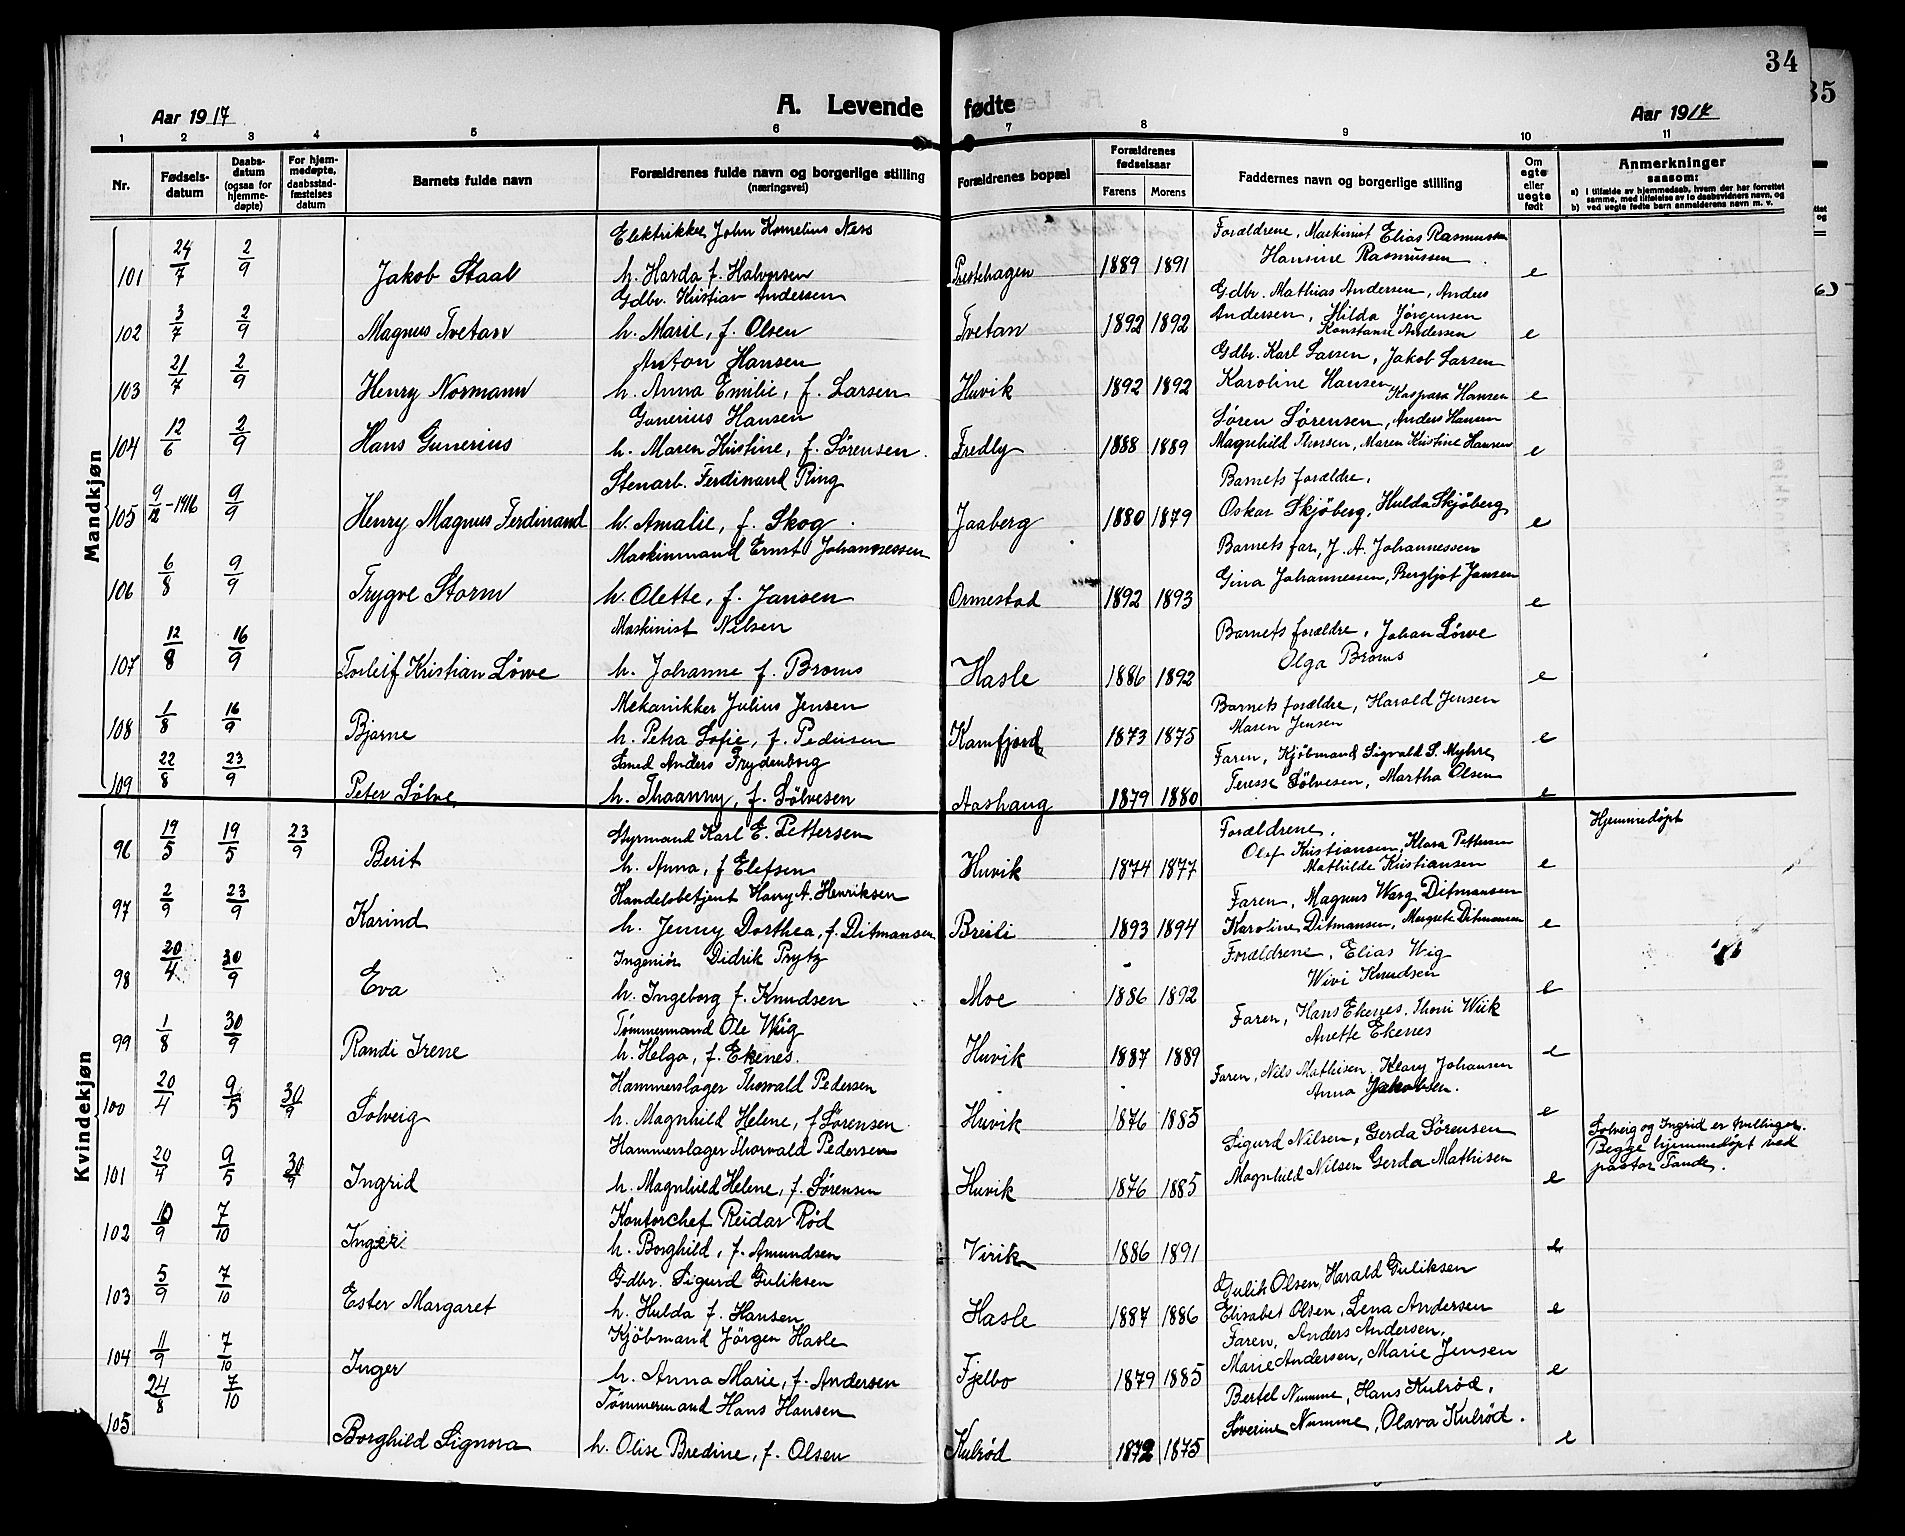 34
35
Aar 1917
A. Levende fødte
Aar 1917
1 2 3 4 5 6 7 8 9 10 11
Nr. Fødsels-datum Daabs-datum (ogsaa for hjemme-døpte) For hjem-medøpte, daabsstad-fæstelses datum Barnets fulde navn Forældrenes fulde navn og borgerlige stilling (næringsvei) Forældrenes bopæl Forældrenes fødselsaar Farens Morens Faddernes navn og borgerlige stilling Om egte eller uegte født Anmerkninger saasom:
a) I tilfælde av hjemmedaab, hvem der har forrettet samme, med tilføielse av to daabsvidners navn, og
b) ved uegte fødte barn anmelderens navn m. v.
Mandkjøn
Elektriker John Kornelius Ness Forældrene, Maskinist Elias Rasmussen
101 24/7 2/9 Jakob Staal h. Harda f. Halvorsen Prestehagen 1889 1891 Hansine Rasmussen e
Gdbr. Kristian Andersen Gdbr. Mathias Andersen, Anders
102 3/7 2/9 Magnus Tvetan h. Marie, f. Olsen Tvetan 1892 1892 Andersen, Hilda Jørgensen
Konstanse Andersen e
Anton Hansen Gdbr. Karl Larsen, Jakob Larsen
103 21/7 2/9 Henry Normann h. Anna Emilie, f. Larsen Huvik 1892 1892 Karoline Hansen Kaspara Hansen e
Gunerius Hansen Søren Sørensen, Anders Hansen
104 12/6 2/9 Hans Gunerius h. Maren Kristine, f. Sørensen. Fredly 1888 1889 Magnhild Thorsen, Maren Kristine Hansen e
Stenarb. Ferdinand Ring Barnets forældre,
105 9/12-1916 9/9 Henry Magnus Ferdinand h. Amalie, f. Skog Jaaberg 1880 1879 Oskar Skjøberg, Hulda Skjøberg e
Maskinmand Ernst Johannessen Barnets far, J. A. Johannessen
106 6/8 9/9 Trygve Storm h. Olette, f. Jansen Ormestad 1892 1893 Gina Johannessen, Bergljot Jansen e
Maskinist Nilsen Barnets forældre, Johan Løwe
107 12/8 16/9 Torleif Kristian Løwe h. Johanne f. Broms Hasle 1886 1892 Olga Broms e
Mekanikker Julius Jensen Barnets forældre, Harald Jensen
108 1/8 16/9 Bjarne h. Petra Sofie, f. Pedersen Kamfjord 1873 1875 Maren Jensen e
Smed Anders Frydenborg Faren, Kjøbmand Sigvald S. Myhre
109 22/8 23/9 Peter Sølve h. Thoanny, f. Sølvesen Aashaug 1879 1880 Teresse Sølvesen, Martha Olsen e
Kvindekjøn
Styrmand Karl E. Pettersen Forældrene, Hjemmedøpt
96 19/5 19/5 23/9 Berit h. Anna, f Elefsen Huvik 1874 1877 Olef Kristiansen, Klara Pettersen
Mathilde Kristiansen e
Handelsbetjent Harry A. Henriksen Faren, Magnus Warg Ditmansen
97 2/9 23/9 Karind h. Jenny Dorthea, f. Ditmansen Breili 1893 1894 Karoline Ditmansen, Margrete Ditmansen e
Ingeniør Didrik Prytz Forældrene, Elias Wig
98 20/4 30/9 Eva h. Ingeborg f. Knudsen Moe 1886 1892 Wivi Knudsen e
Tømmermand Ole Wiig Faren, Hans Ekenes, Thoni Wiik
99 1/8 30/9 Randi Irene h. Helga, f. Ekenes. Huvik 1887 1889 Anette Ekenes e
Hammerslager Thorvald Pedersen Faren, Nils Mathisen, Henry Johansen
Anna Jakobsen.
100 20/4 9/5 30/9 Solveig h. Magnhild Helene, f Sørensen Huvik 1876 1885 e
Hammerslager Thorvald Pedersen Sigurd Nilsen, Gerda Sørensen Solveig og Ingrid er tvillinger.
Begge hjemmedøpt ved
101 20/4 9/5 30/9 Ingrid h. Magnhild Helene, f. Sørensen Huvik 1876 1885 Magnhild Nilsen Gerda Mathisen e pastor Tande.
Kontorchef Reidar Rød
102 10/9 7/10 Inger h. Borghild, f. Amundsen Virik 1886 1891 e
Gdbr. Sigurd Guliksen Gulik Olsen, Harald Guliksen
103 5/9 7/10 Ester Margaret h. Hulda f. Hansen Hasle 1887 1886 Elisabet Olsen, Lena Andersen e
Kjøbmand Jörgen Hasle Faren, Anders Andersen,
104 11/9 7/10 Inger h. Anna Marie, f. Andersen Fjelbo 1879 1885 Marie Andersen, Marie Jensen e
Tømmermand Hans Hansen Bertel Numme, Hans Kulrød,
105 24/8 7/10 Borghild Signora h. Olise Bredine, f. Olsen Kulrød 1872 1875 Severine Numme, Olava Kulrød. e